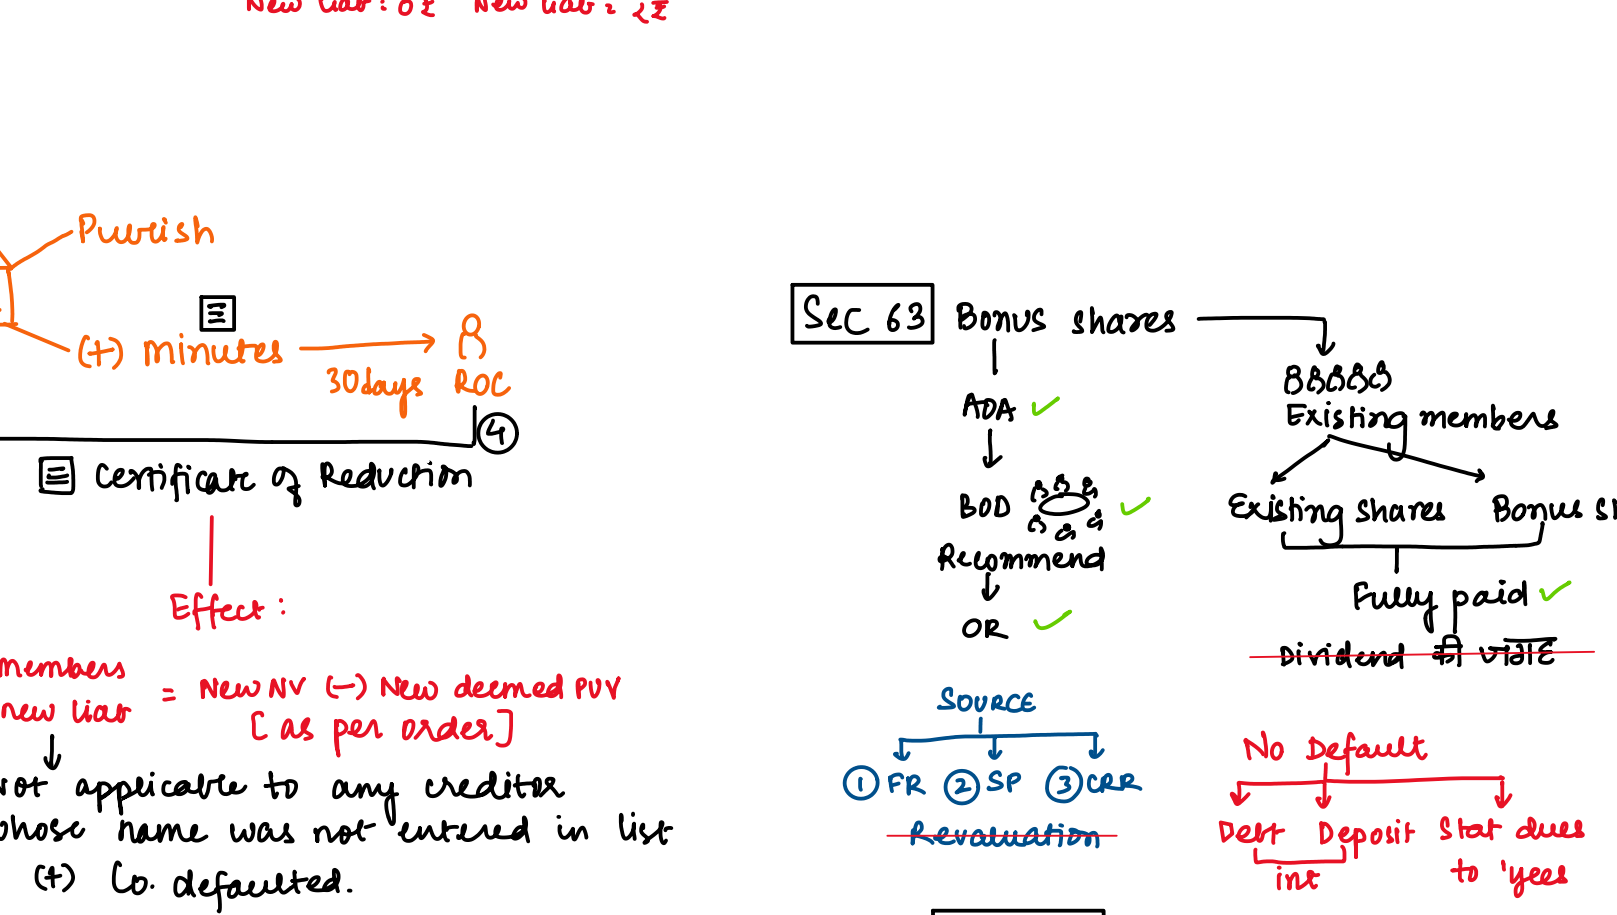 New liab: 0₹ New liab = 2₹
Publish
(+) minutes
30days ROC
4
Certificate of Reduction
Effect:
members
new liab = New NV (-) New deemed PUV
[as per order]
not applicable to any creditor
whose name was not entered in list
(+) Co. defaulted.
Sec 63 Bonus shares
AOA
BOD
Recommend
OR
SOURCE
1 FR 2 SP 3 CRR
Revaluation
Existing members
Existing shares Bonus sh
Fully paid
Dividend
No Default
Debt Deposit Stat dues
int to 'yees